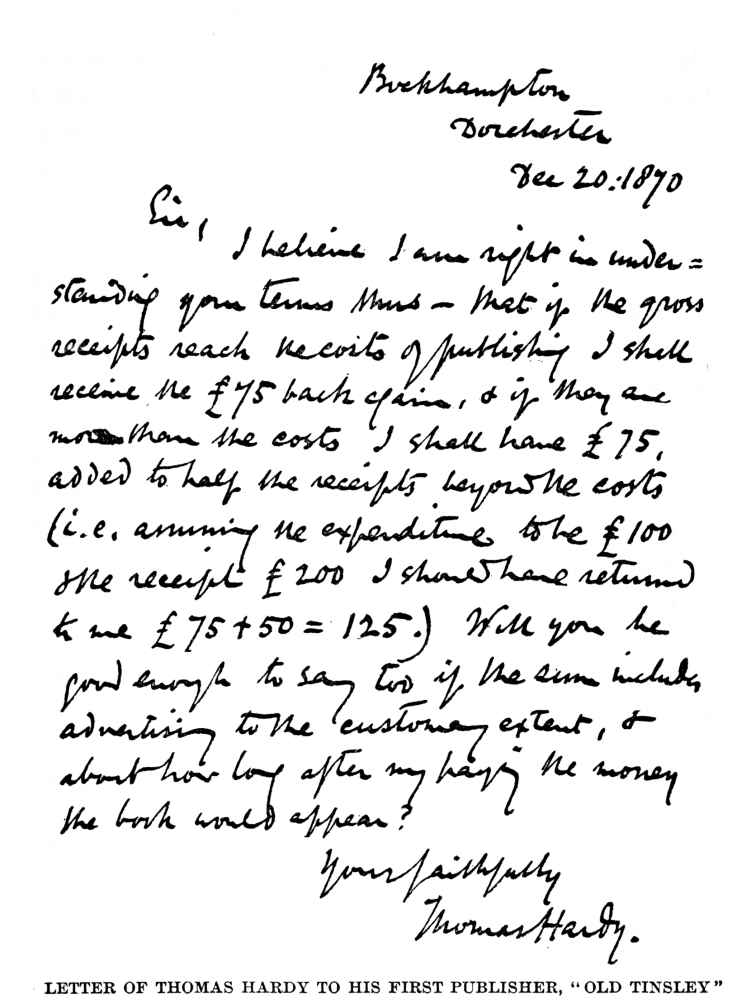 Bockhampton
Dorchester
Dec 20: 1870
Sir,
I believe I am right in under=
standing your terms thus – that if the gross
receipts reach the costs of publishing I shall
receive the £75 back again, & if they are
more than the costs I shall have £75,
added to half the receipts beyond the costs
(i.e. assuming the expenditure to be £100
& the receipt £200 I should have returned
to me £75+50 = 125.) Will you be
good enough to say too if the sum includes
advertising to the customary extent, &
about how long after my paying the money
the book would appear?
Yours faithfully
Thomas Hardy.
LETTER OF THOMAS HARDY TO HIS FIRST PUBLISHER, “OLD TINSLEY”